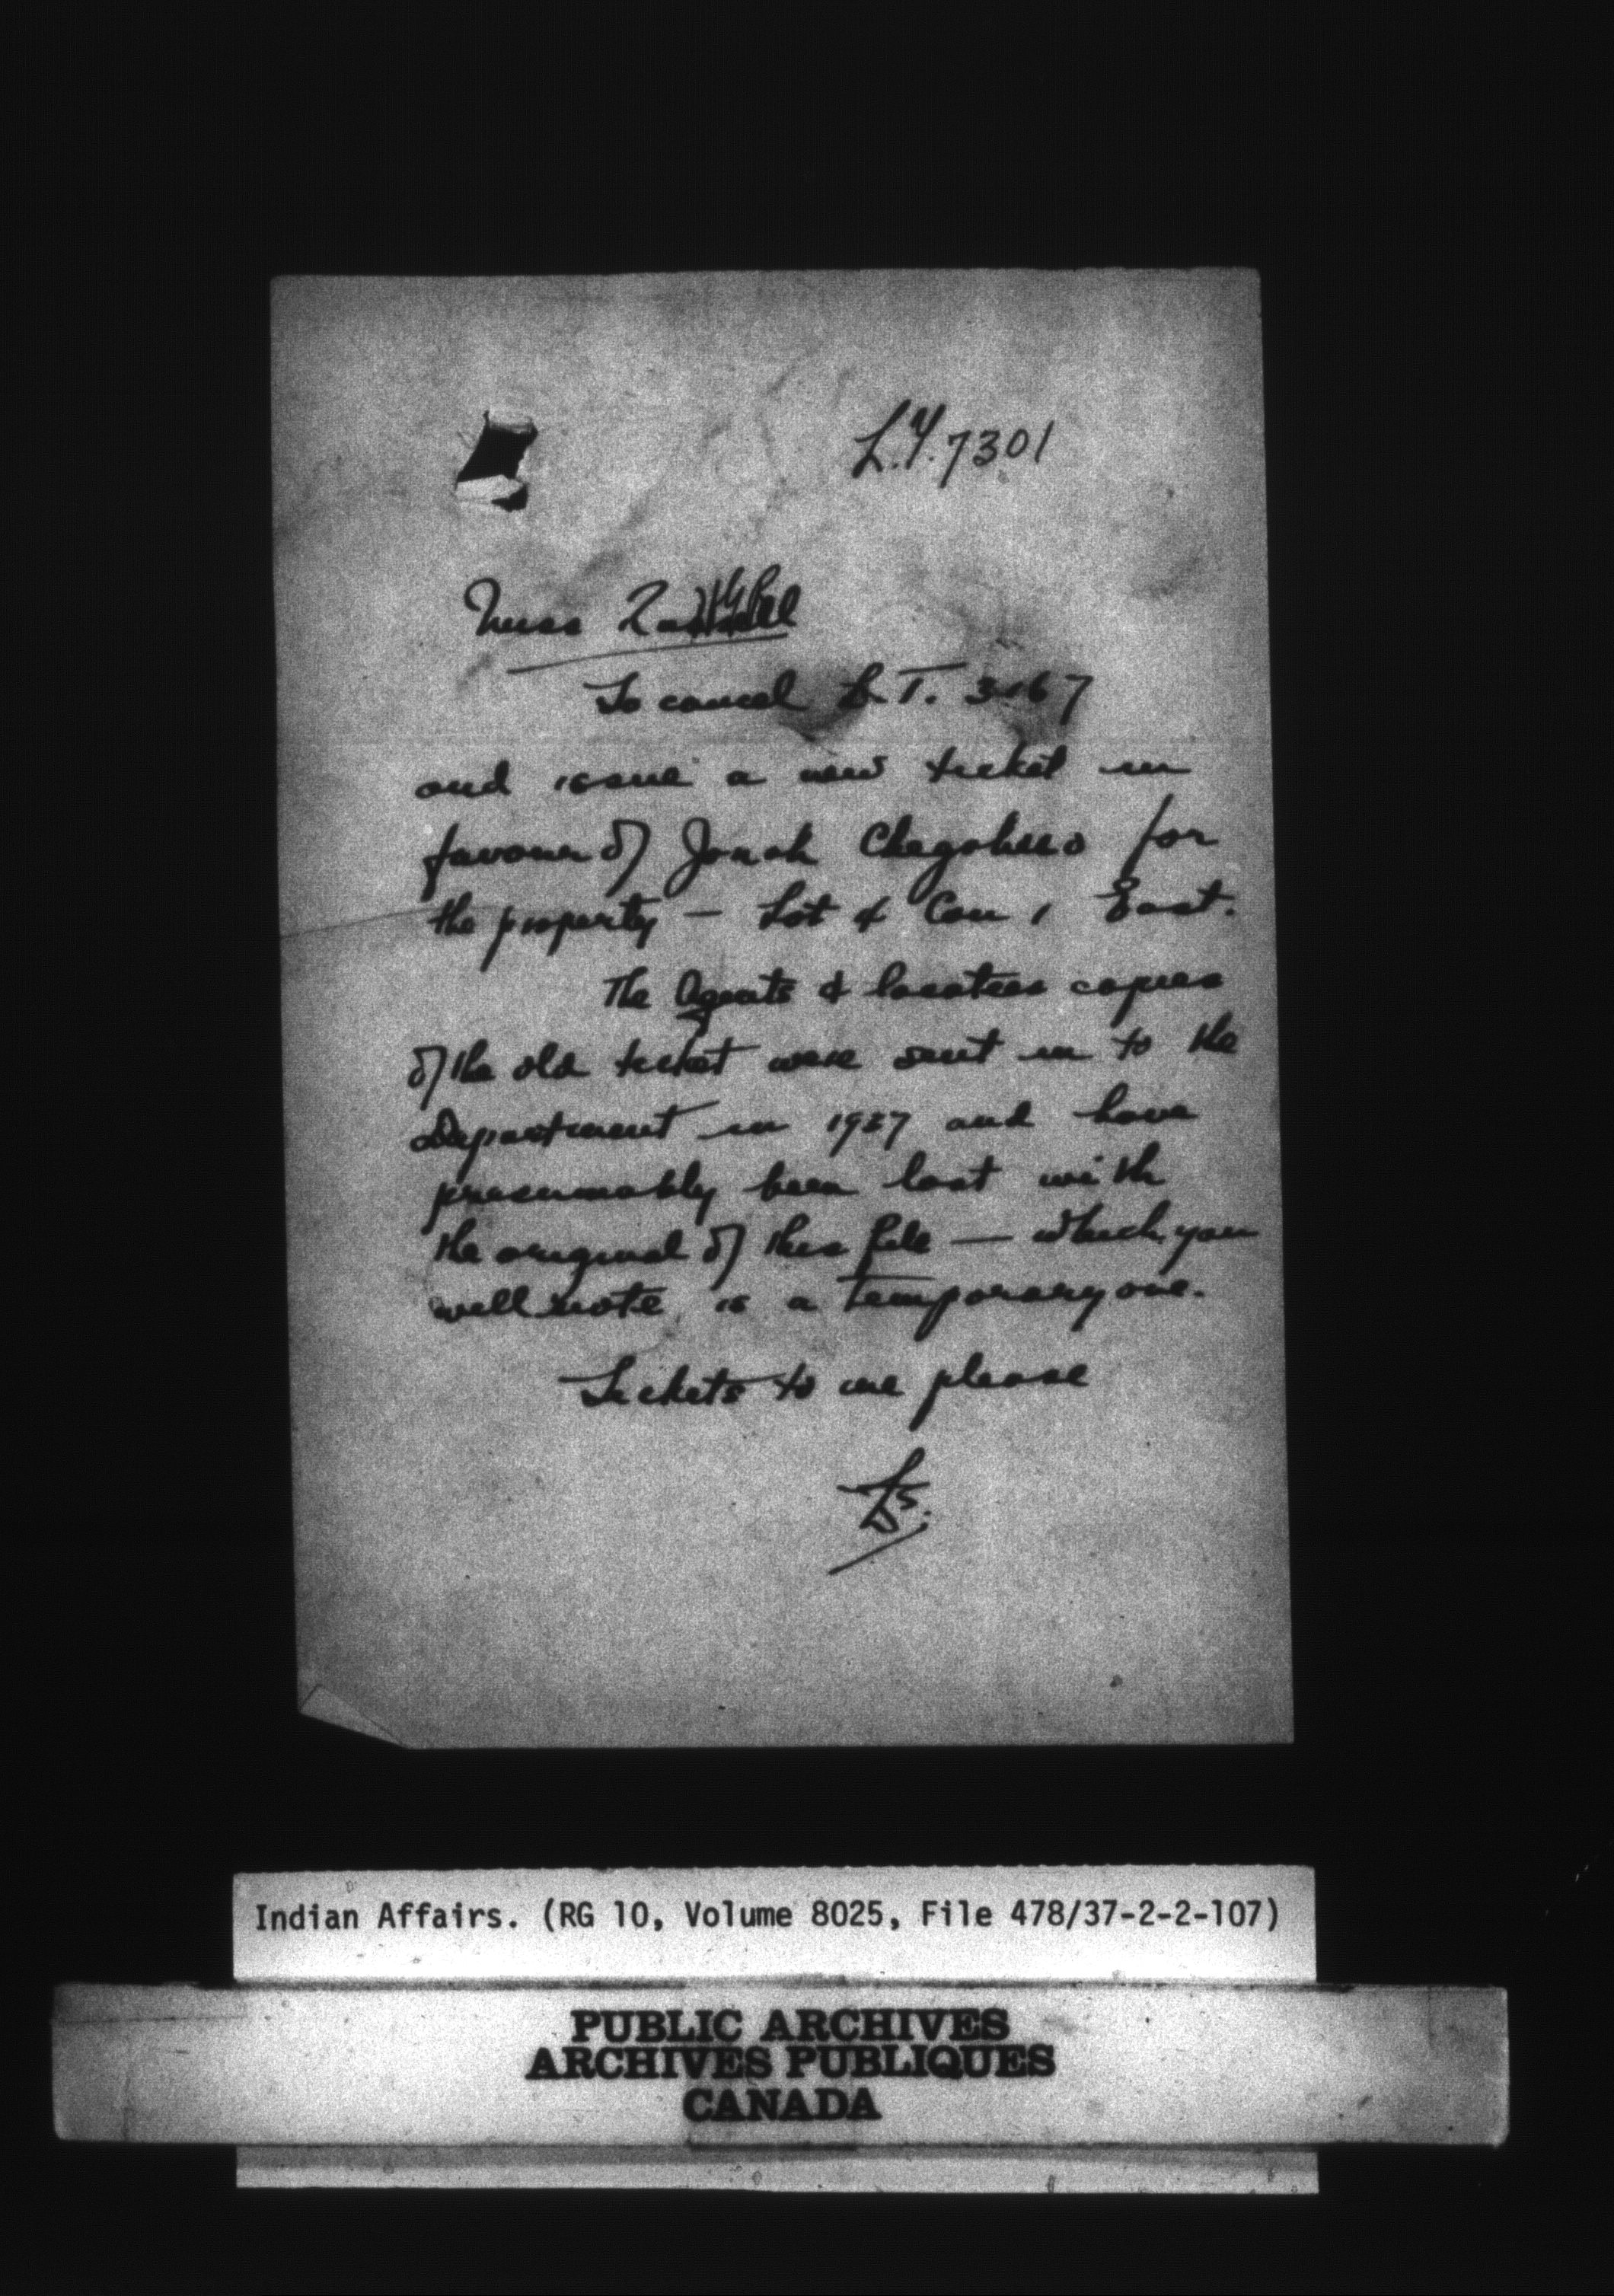 L.T. 7301
Miss
To cancel L.T. 3167
and issue a new ticket in
favour of Jonah for
the property — Lot 4 Con 1 East.
The Agents & locatees copies
of the old ticket were sent in to the
Department in 1927 and have
presumably been lost with
the original of this file — which you
will note is a temporary one.
Tickets to me please
Indian Affairs. (RG 10, Volume 8025, File 478/37-2-2-107)
PUBLIC ARCHIVES
ARCHIVES PUBLIQUES
CANADA